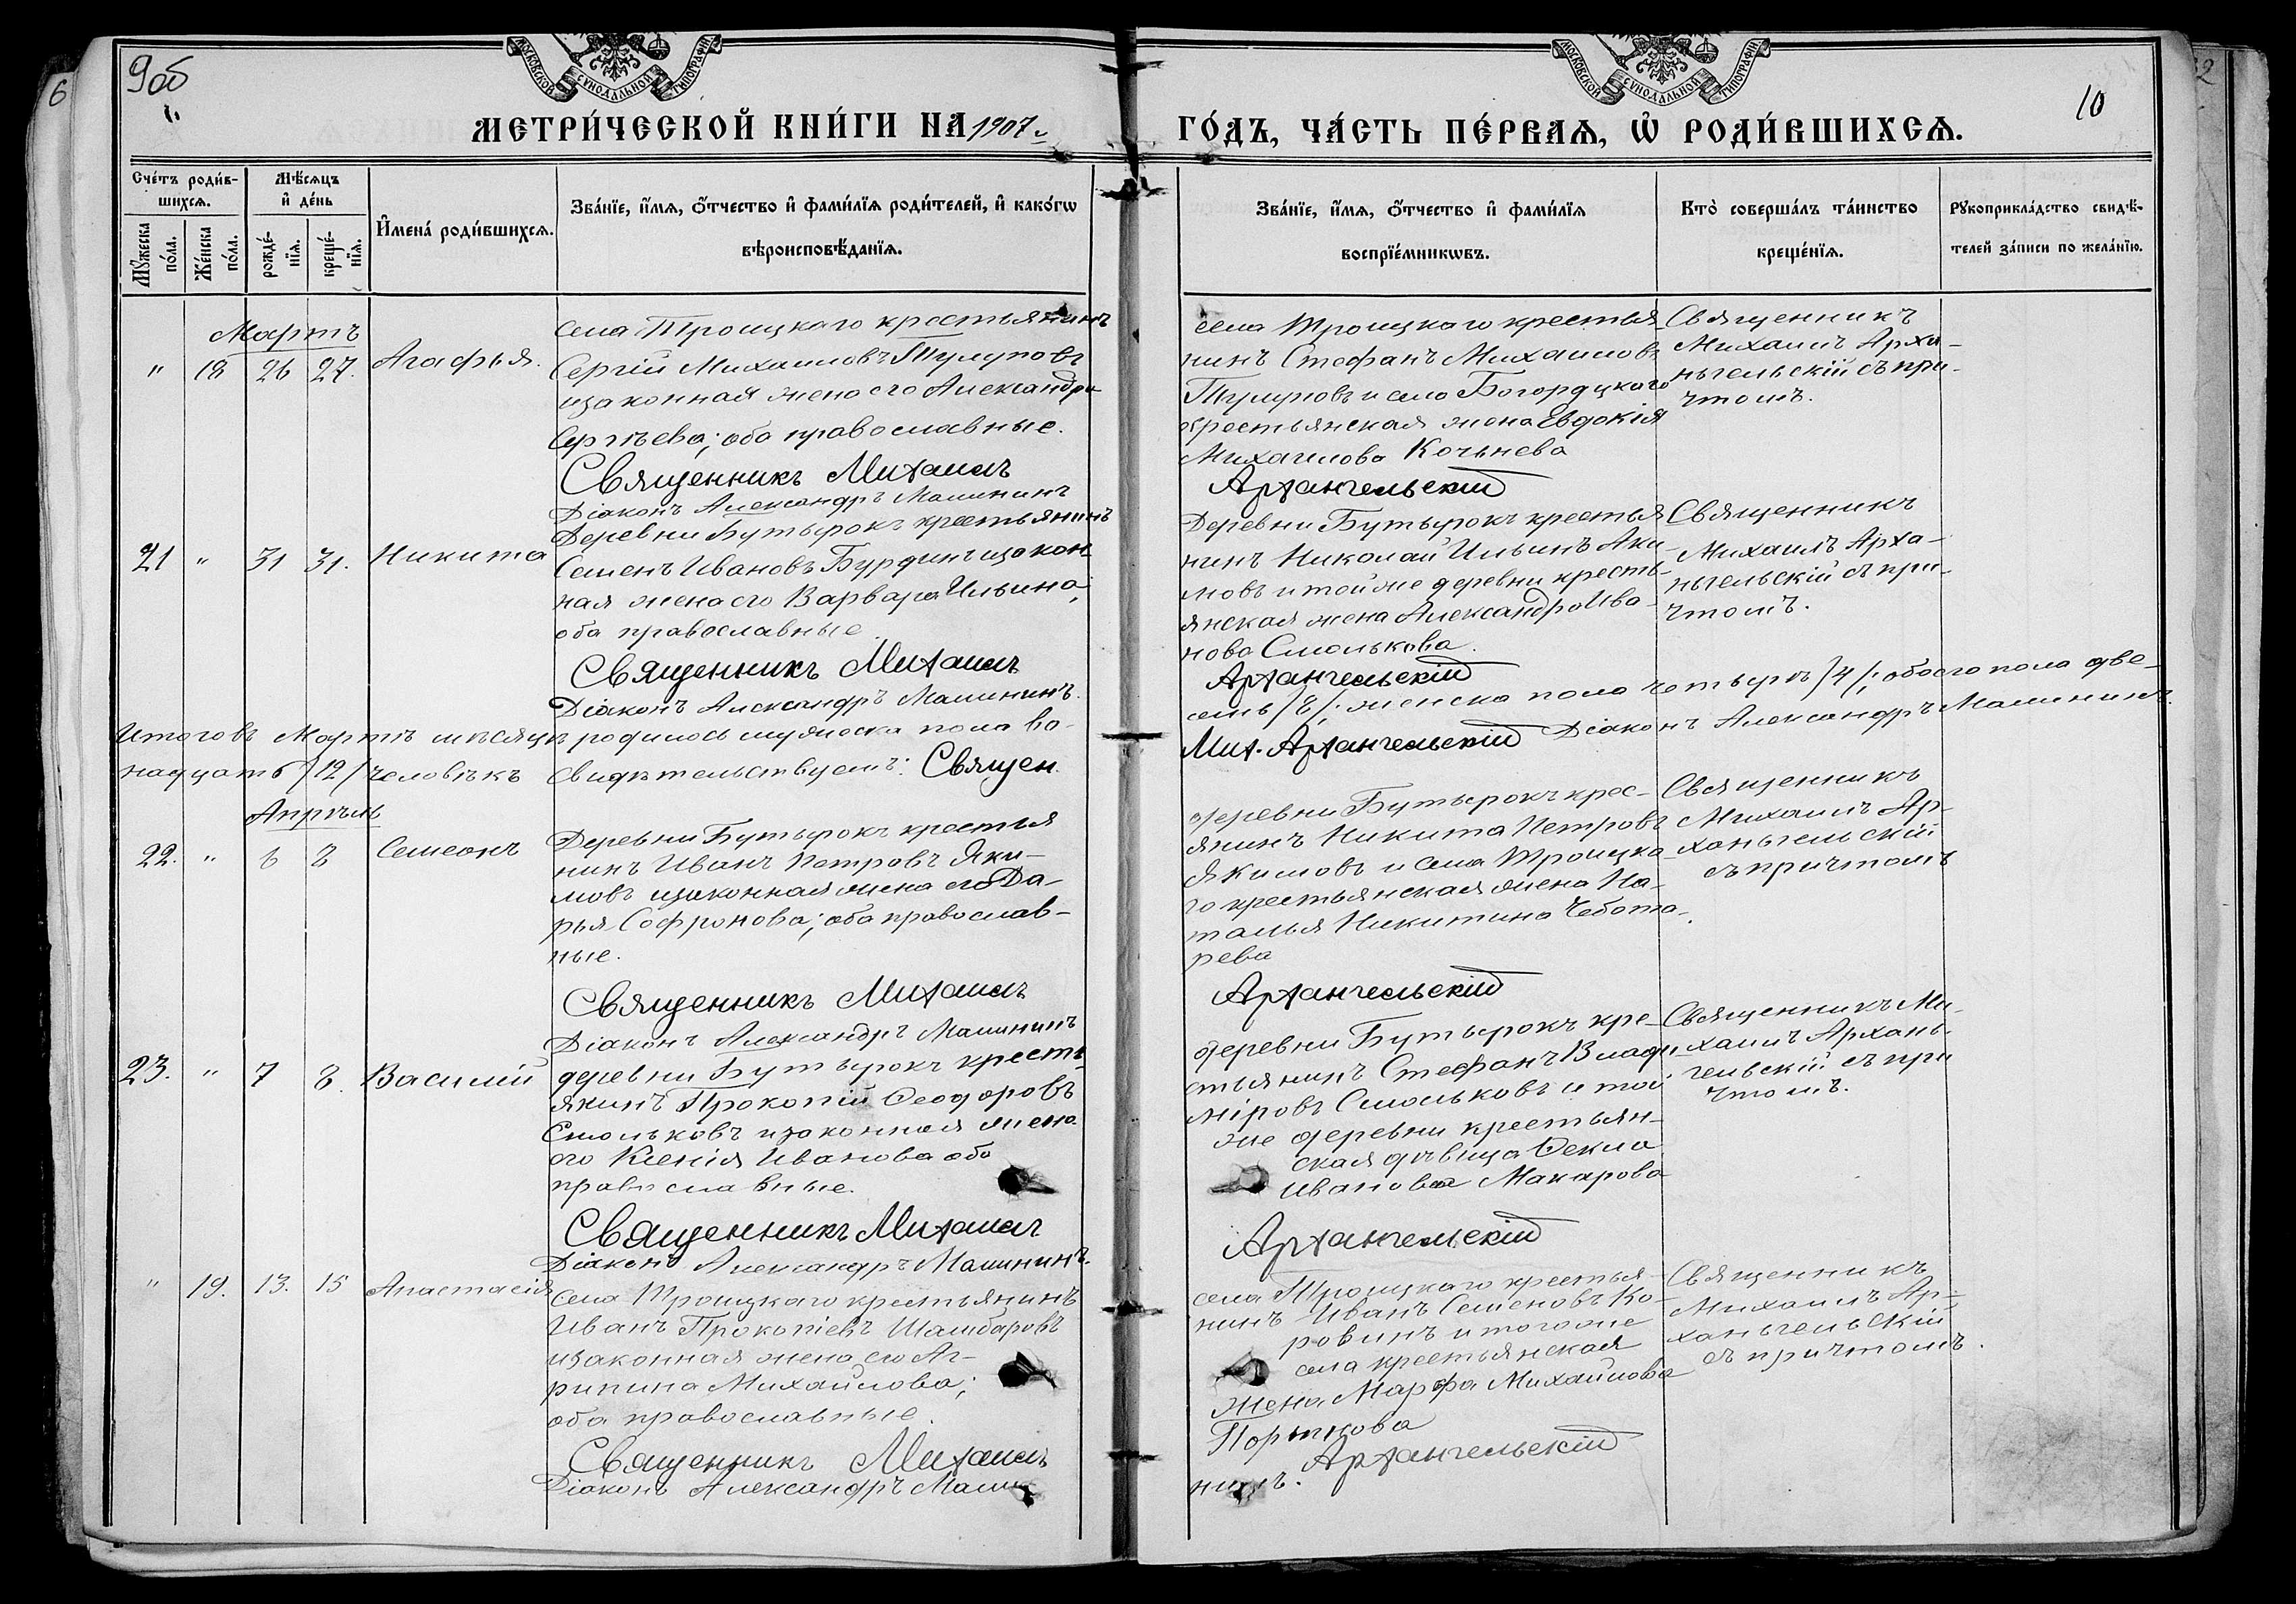 9об
10
6
МОСКОВСКОЙ СУНОДАЛЬНОЙ ТИПОГРАФІИ
МОСКОВСКОЙ СУНОДАЛЬНОЙ ТИПОГРАФІИ
МЕТРИ́ЧЕСКОЙ КНИ́ГИ НА 1907 г.
ГО́ДЪ, ЧА́СТЬ ПЕ́РВАѦ, Ѡ҆ РОДИ́ВШИХСѦ.
Сче́тъ роди́в-
шихсѧ.
Мѣ́сѧцъ
и҆ де́нь
Мꙋ́жеска по́ла.
Же́нска по́ла.
рожде́-
нїѧ.
креще́-
нїѧ.
И҆мена̀ роди́вшихсѧ.
Зва́нїе, и҆́мѧ, ѻ҆́тчество и҆ фами́лїѧ роди́телей, и҆ како́гѡ
вѣроисповѣ́данїѧ.
Зва́нїе, и҆́мѧ, ѻ҆́тчество и҆ фами́лїѧ
воспрїе́мникѡвъ.
Кто̀ соверша́лъ та́инство
креще́нїѧ.
Рꙋкоприкла́дство свидѣ́-
телей за́писи по жела́нїю.
Мартъ
" 18 26 27. Агафья.
села Троицкаго крестьянинъ
Сергій Михаиловъ Тулуповъ
и законная жена его Александра
Сергѣева; оба православные.
Священникъ Михаилъ
Діаконъ Александръ Малининъ
села Троицкаго крестья-
нинъ Стефанъ Михаиловъ
Тулуповъ и села Богородцкаго
крестьянская жена Евдокія
Михаилова Кочьнева
Архангельскій
Священникъ
Михаилъ Арха-
нгельскій съ при-
чтомъ.
21 " 31 31. Никита
Деревни Бутырокъ крестьянинъ
Семенъ Ивановъ Бурдинъ и закон
ная жена его Варвара Ильина;
оба православные.
Священникъ Михаилъ
Діаконъ Александръ Малининъ.
Деревни Бутырокъ крестья
нинъ Николай Ильинъ Аки-
мовъ и той же деревни кресть-
янская жена Александра Ива-
нова Смолькова.
Архангельскій
Священникъ
Михаилъ Арха-
нгельскій съ при-
чтомъ.
Итого въ Мартѣ мѣсяцѣ родилось мужеска пола во-
семь /8/; женска пола четыре /4/; обоего пола две-
надцать /12/ человѣкъ Свидѣтельствуемъ: Священ.
Мих. Архангельскій Діаконъ Александръ Малининъ.
Апрѣль
22. " 6 8 Симеонъ
Деревни Бутырокъ крестья
нинъ Иванъ Петровъ Яки-
мовъ и законная жена его Да-
рья Софронова; оба православ-
ные.
Священникъ Михаилъ
Діаконъ Александръ Малининъ
деревни Бутырокъ крес-
янинъ Никита Петровъ
Якимовъ и села Троицка-
го крестьянская жена На-
талья Никитина Чебота-
рева
Архангельскій
Священникъ
Михаилъ Ар-
хангельскій
съ причтомъ
23. " 7 8. Василій
деревни Бутырокъ кресть-
янинъ Прокопій Ѳеодоровъ
Смольковъ и законная жена
его Ксенія Иванова оба
православные.
Священникъ Михаилъ
Діаконъ Александръ Малининъ.
деревни Бутырокъ кре-
стьянинъ Стефанъ Влади-
міровъ Смольковъ и той
же деревни крестьян-
ская дѣвица Ѳекла
Иванова Макарова
Архангельскій
Священникъ Ми-
хаилъ Архань-
гельскій съ при
чтомъ.
" 19. 13. 15 Анастасія
села Троицкаго крестьянинъ
Иванъ Прокопіевъ Шамбаровъ
и законная жена его Аг-
рипина Михайлова;
оба православные.
Священникъ Михаилъ
Діаконъ Александръ Мали
села Троицкаго крестья-
нинъ Иванъ Семеновъ Ко-
ровинъ и того же
села крестьянская
жена Марфа Михайлова
Архангельскій
нинъ.
Священникъ
Михаилъ Ар-
хангельскій
съ причтомъ.